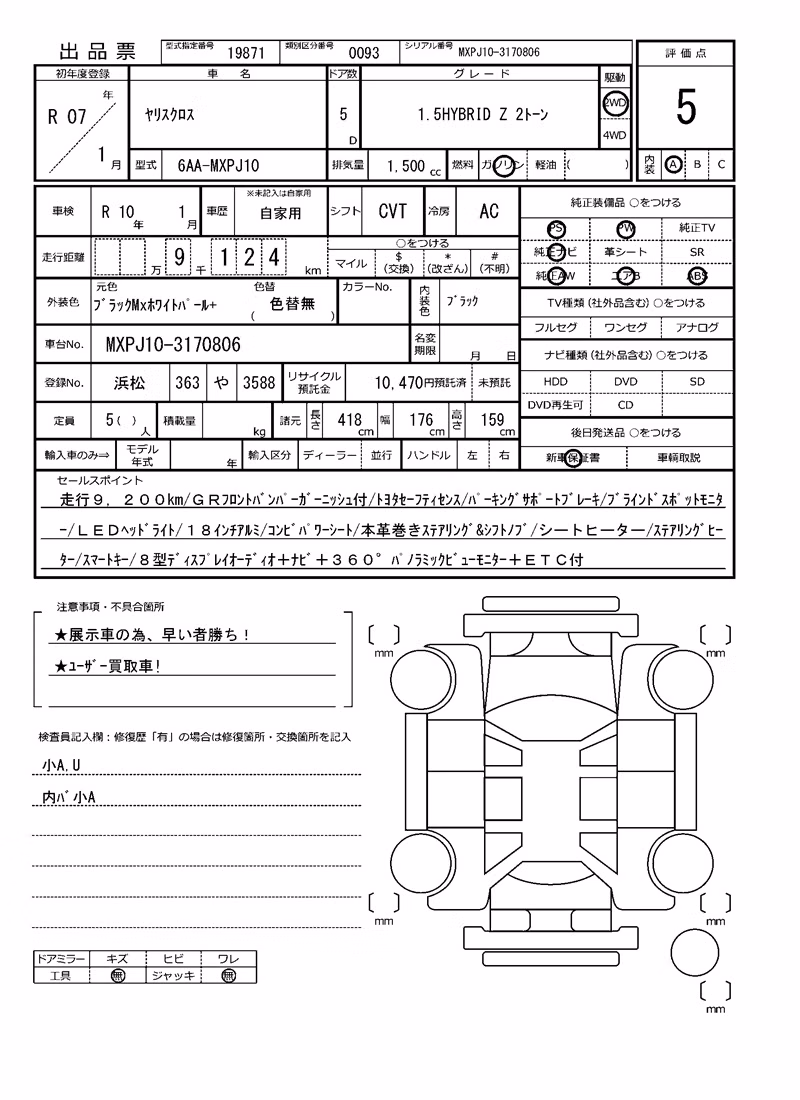 出品票 型式指定番号 19871 類別区分番号 0093 シリアル番号 MXPJ10-3170806 評価点
初年度登録 車名 ドア数 グレード 駆動
R 07 年 1 月 ヤリスクロス 5 D 1.5HYBRID Z 2トーン 2WD 4WD 5
型式 6AA-MXPJ10 排気量 1,500 cc 燃料 ガソリン 軽油 ( ) 内装 A B C
車検 R 10 年 1 月 車歴 ※未記入は自家用 自家用 シフト CVT 冷房 AC
走行距離 万 9 千 1 2 4 km ○をつける マイル $ (交換) * (改ざん) # (不明)
外装色 元色 ブラックMxホワイトパール+ 色替 ( 色替無 ) カラーNo. 内装色 ブラック
車台No. MXPJ10-3170806 名変期限 月 日
登録No. 浜松 363 や 3588 リサイクル預託金 10,470円預託済 未預託
定員 5( ) 人 積載量 kg 諸元 長さ 418 cm 幅 176 cm 高さ 159 cm
輸入車のみ⇒ モデル年式 年 輸入区分 ディーラー 並行 ハンドル 左 右
純正装備品 ○をつける
PS PW 純正TV
純正ナビ 革シート SR
純正AW エアB ABS
TV種類(社外品含む) ○をつける
フルセグ ワンセグ アナログ
ナビ種類(社外品含む) ○をつける
HDD DVD SD
DVD再生可 CD
後日発送品 ○をつける
新車保証書 車輌取説
セールスポイント
走行9，200km/GRフロントバンパーガーニッシュ付/トヨタセーフティセンス/パーキングサポートブレーキ/ブラインドスポットモニタ
ー/LEDヘッドライト/18インチアルミ/コンビパワーシート/本革巻きステアリング&シフトノブ/シートヒーター/ステアリングヒー
ター/スマートキー/8型ディスプレイオーディオ＋ナビ＋360°パノラミックビューモニター＋ETC付
注意事項・不具合箇所
★展示車の為、早い者勝ち！
★ユーザー買取車!
検査員記入欄：修復歴「有」の場合は修復箇所・交換箇所を記入
小A,U
内バ小A
ドアミラー キズ ヒビ ワレ
工具 無 ジャッキ 無
mm mm
mm mm
mm